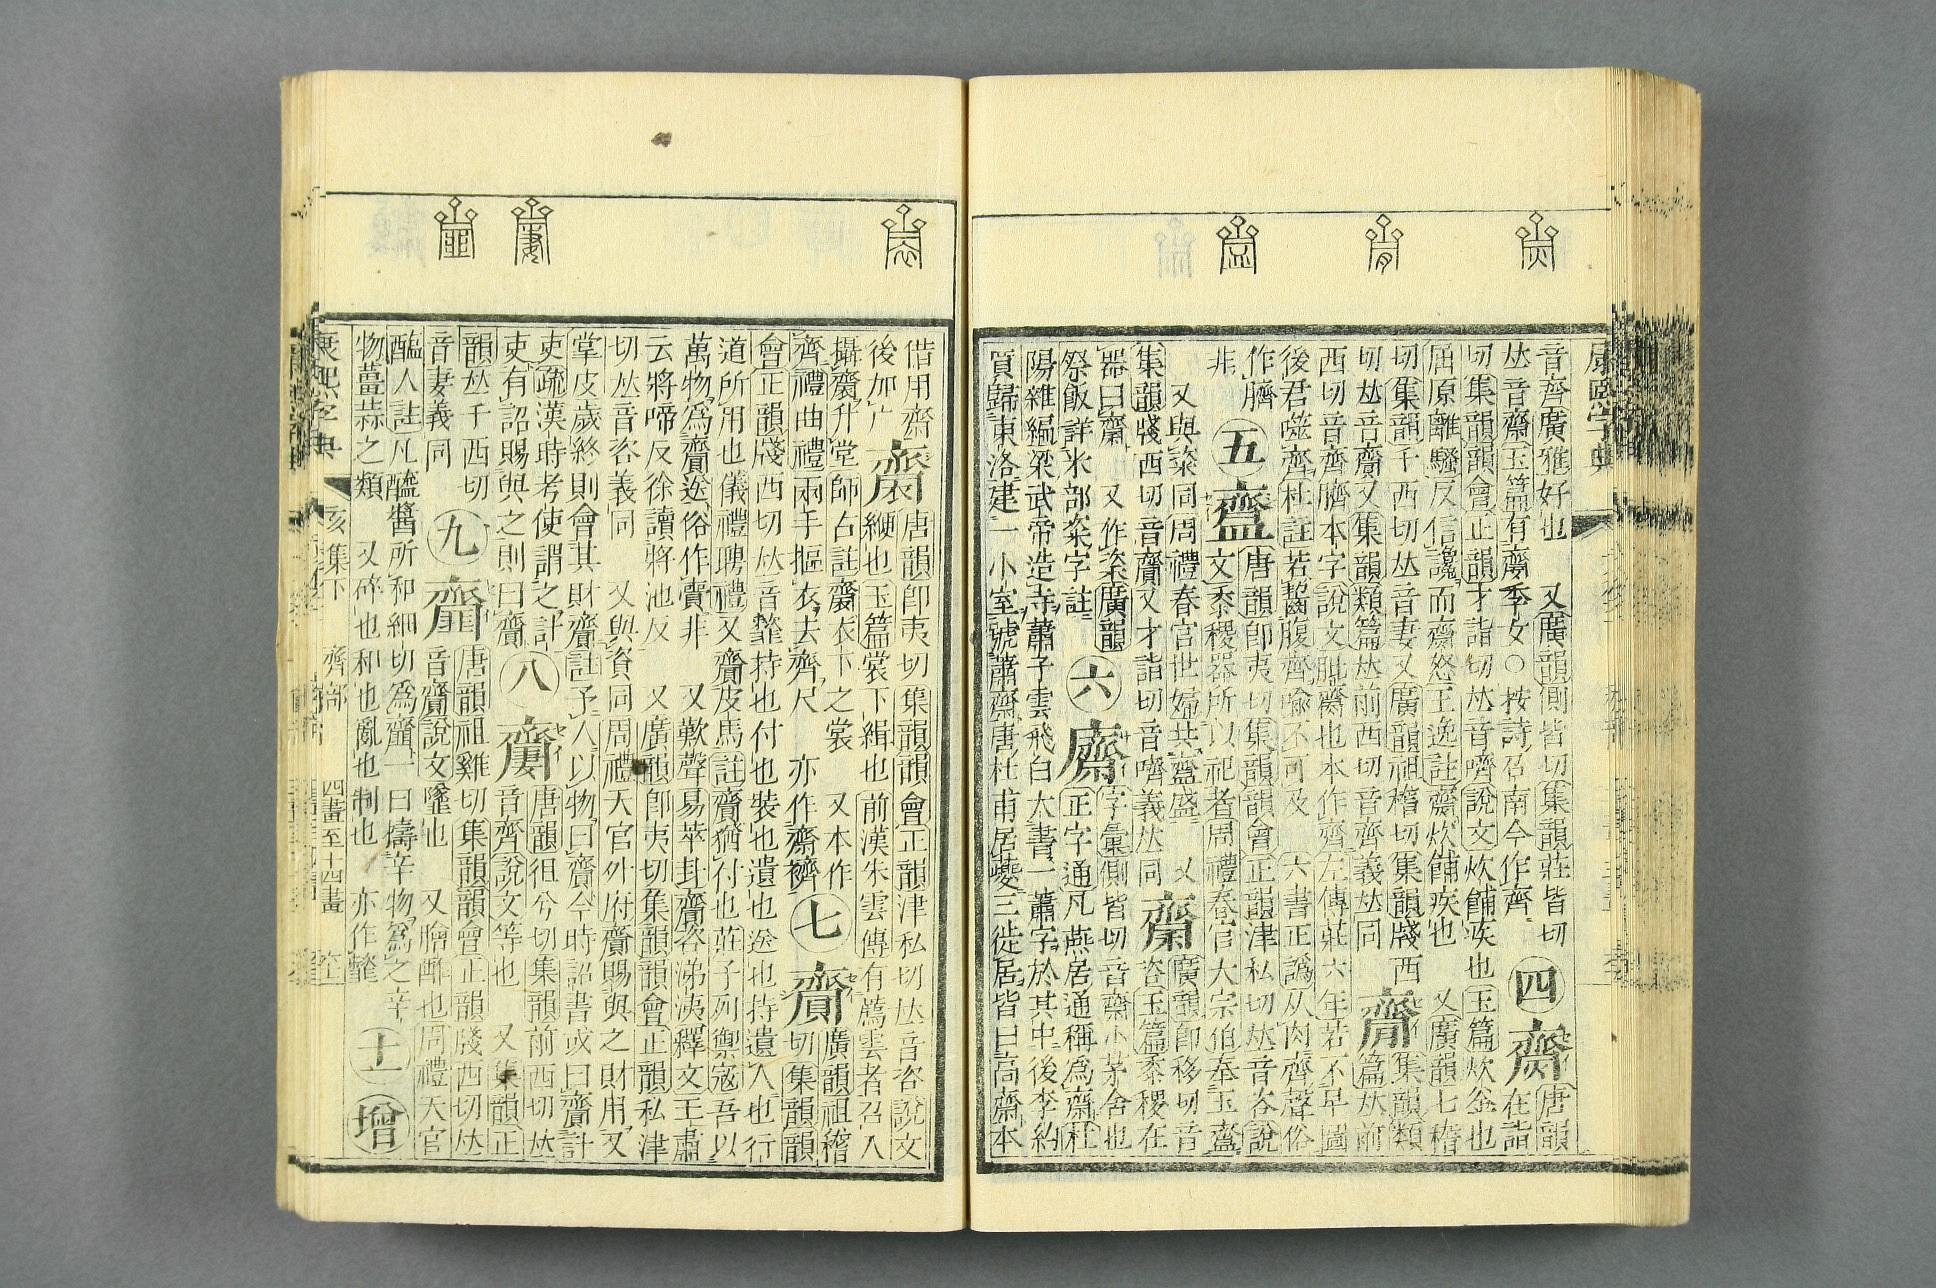 康熙字典
音齊廣雅好也　又廣韻側皆切集韻莊皆切　四　齌　唐韻
𠀤音齋玉篇有齌季女○按詩召南今作齊　在詣
切集韻韻會正韻才詣切𠀤音嚌說文炊餔疾也玉篇炊釜也
屈原離騷反信讒而齌怒王逸註齌炊餔疾也　又廣韻七稽
切集韻千西切𠀤音妻又廣韻祖稽切集韻牋西　集韻類
切𠀤音齎又集韻類篇𠀤前西切音齊義𠀤同　篇𠀤前
西切音齊臍本字說文肶齎也本作齊左傳莊六年若不早圖
後君噬齊杜註若齧腹齊喻不可及　六書正譌从肉齊聲俗
作臍　五　齍　唐韻卽夷切集韻韻會正韻津私切𠀤音咨說
非　文黍稷器所以祀者周禮春官大宗伯奉玉齍
又與粢同周禮春官世婦共齍盛　又　廣韻卽移切音
集韻牋西切音齎又才詣切音嚌義𠀤同　咨玉篇黍稷在
器曰　又作粢廣韻　字彙側皆切音齋小茅舍也
祭飯詳米部粢字註　六　正字通凡燕居通稱為齋杜
陽雜編梁武帝造寺蕭子雲飛白大書一蕭字於其中後李約
買歸東洛建一小室號蕭齋唐杜甫居夔三徙居皆曰高齋本
借用齋　唐韻卽夷切集韻韻會正韻津私切𠀤音咨說文
後加广　緶也玉篇裳下緝也前漢朱雲傳有薦雲者召入
攝升堂師古註衣下之裳　又本作　廣韻祖稽
齊禮曲禮兩手摳衣去齊尺　亦作　七　齎　切集韻韻
會正韻牋西切𠀤音虀持也付也裝也遺也送也持遺人也行
道所用也儀禮聘禮又齎皮馬註齎猶付也莊子列禦寇吾以
萬物為齎送俗作賷非　又歎聲易萃卦齎咨涕洟釋文王肅
云將啼反徐讀將池反　又廣韻卽夷切集韻韻會正韻津私
切𠀤音咨義同　又與資同周禮天官外府齎賜與之財用又
掌皮歲終則會其財齎註予人以物曰齎今時詔書或曰齎計
吏疏漢時考使謂之計　八　唐韻徂兮切集韻前西切𠀤
吏有詔賜與之則曰齎　音齊說文等也　又集韻正
韻𠀤千西切　九　齏　唐韻祖雞切集韻韻會正韻牋西切𠀤
音妻義同　音齎說文墜也　又膾酢也周禮天官
醢人註凡醯醬所和細切為齏一曰擣辛物為之辛
物薑蒜之類　又碎也和也亂也制也　亦作　十一　增
康熙字典　亥集下　齊部　四畫至十四畫